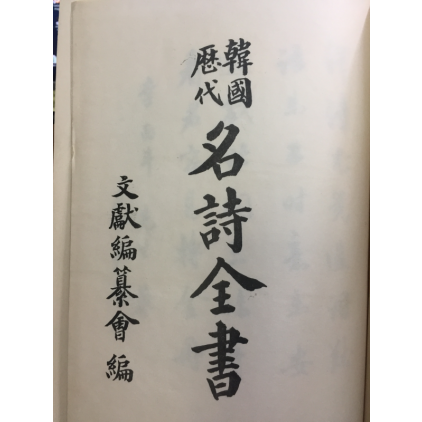 韓國
歷代
名詩全書
文獻編纂會 編